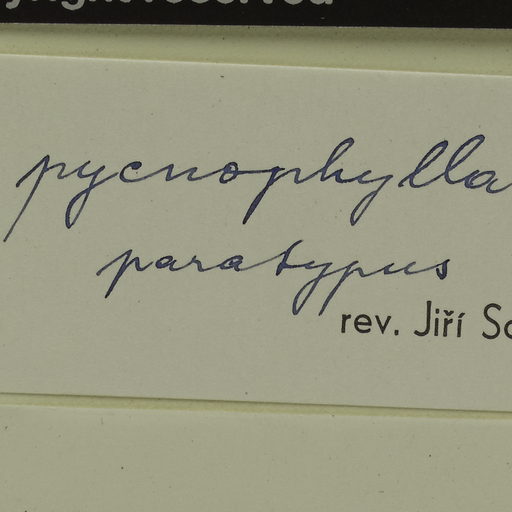 pycnophylla
paratypus
rev. Jiří